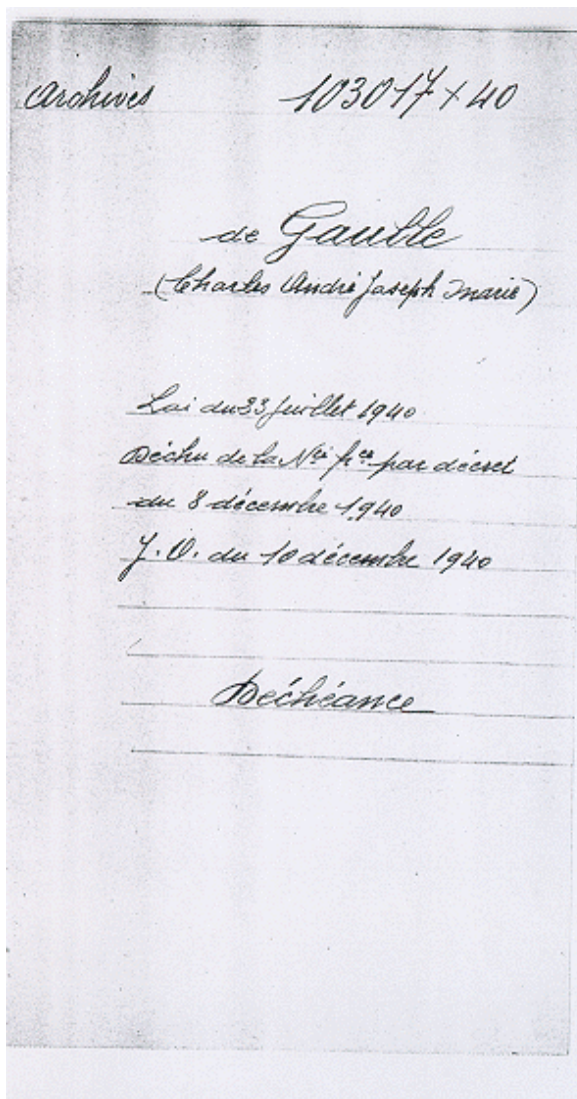 Archives 103017 X 40
de Gaulle
(Charles André Joseph Marie)
Loi du 23 Juillet 1940
Déchu de la Nté fse par décret
du 8 décembre 1940
J.O. du 10 décembre 1940
Déchéance